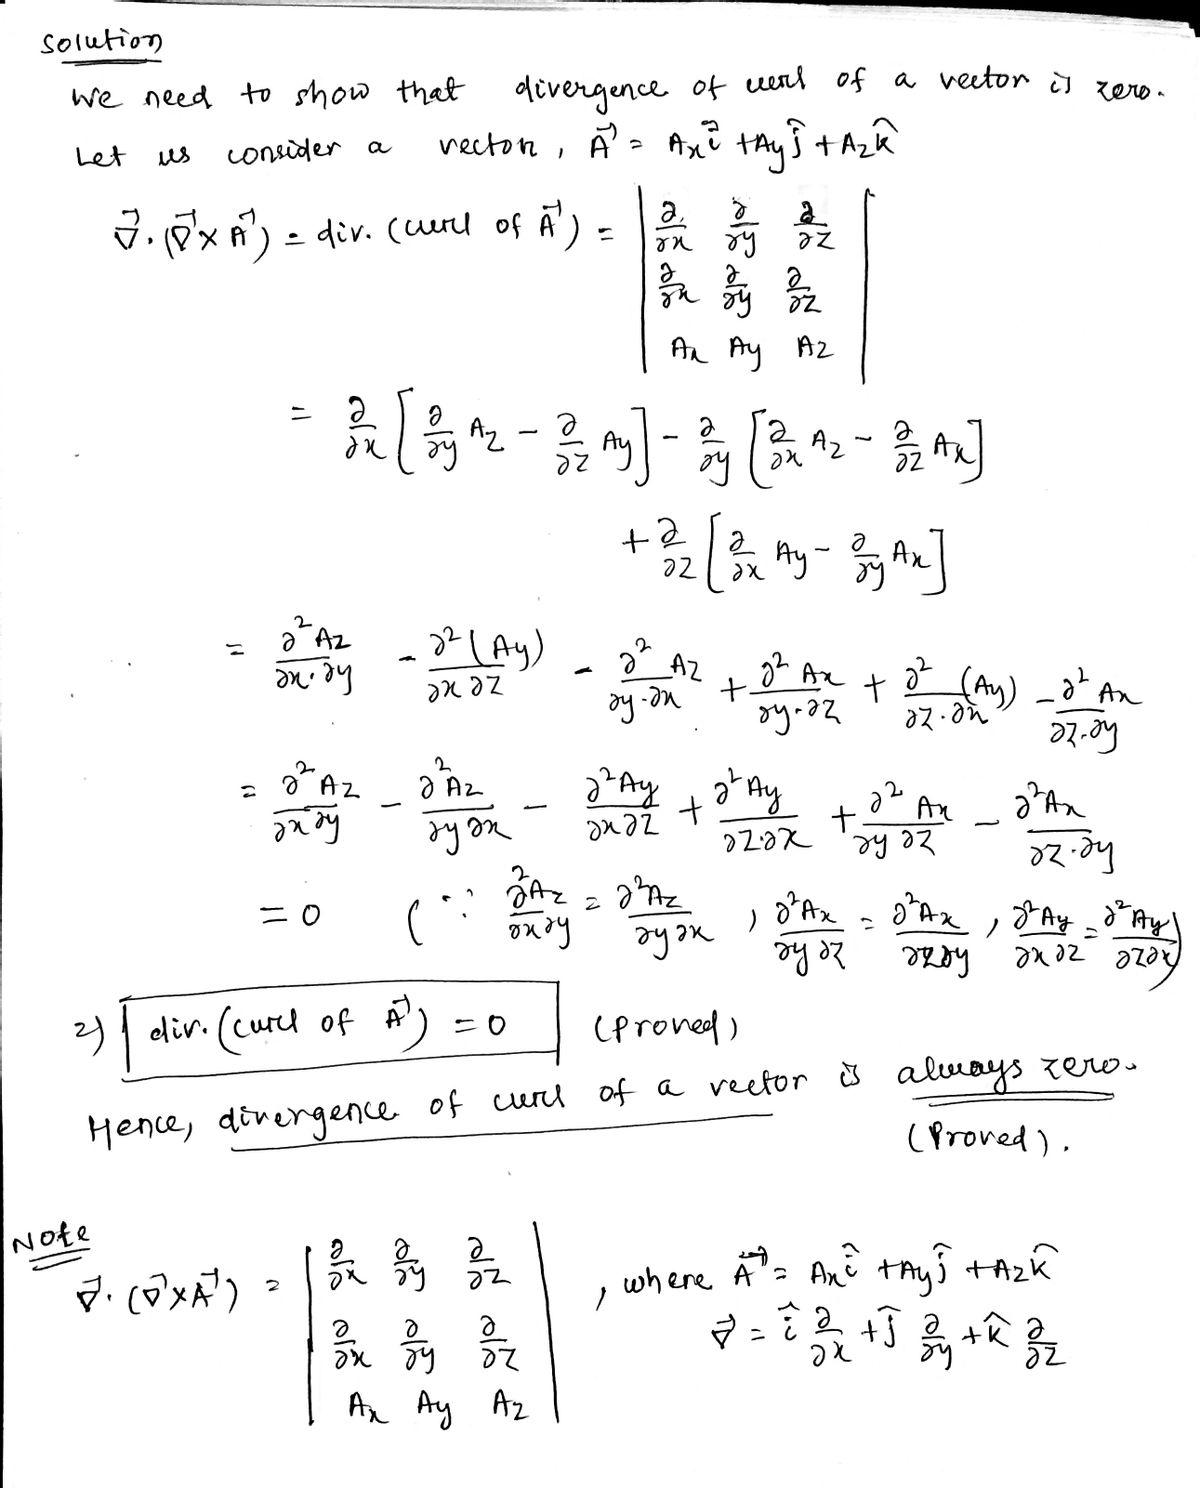 Solution
We need to show that divergence of curl of a vector is zero.
Let us consider a vector, A⃗ = Axî + Ayĵ + Azk̂
∇⃗·(∇⃗×A⃗) = div. (curl of A⃗) = | ∂/∂x ∂/∂y ∂/∂z |
| ∂/∂x ∂/∂y ∂/∂z |
| Ax Ay Az |
= ∂/∂x [∂/∂y Az - ∂/∂z Ay] - ∂/∂y [∂/∂x Az - ∂/∂z Ax]
+ ∂/∂z [∂/∂x Ay - ∂/∂y Ax]
= ∂²Az/∂x·∂y - ∂²(Ay)/∂x∂z - ∂²Az/∂y·∂x + ∂²Ax/∂y·∂z + ∂²(Ay)/∂z·∂x - ∂²Ax/∂z·∂y
= ∂²Az/∂x∂y - ∂²Az/∂y∂x - ∂²Ay/∂x∂z + ∂²Ay/∂z·∂x + ∂²Ax/∂y∂z - ∂²Ax/∂z·∂y
= 0 (∵ ∂²Az/∂x∂y = ∂²Az/∂y∂x , ∂²Ax/∂y∂z = ∂²Ax/∂z∂y , ∂²Ay/∂x∂z = ∂²Ay/∂z∂x)
2) div. (curl of A⃗) = 0 (Proved)
Hence, divergence of curl of a vector is always zero.
(Proved).
Note
∇⃗·(∇⃗×A⃗) = | ∂/∂x ∂/∂y ∂/∂z | , where A⃗ = Axî + Ayĵ + Azk̂
| ∂/∂x ∂/∂y ∂/∂z | ∇⃗ = î ∂/∂x + ĵ ∂/∂y + k̂ ∂/∂z
| Ax Ay Az |